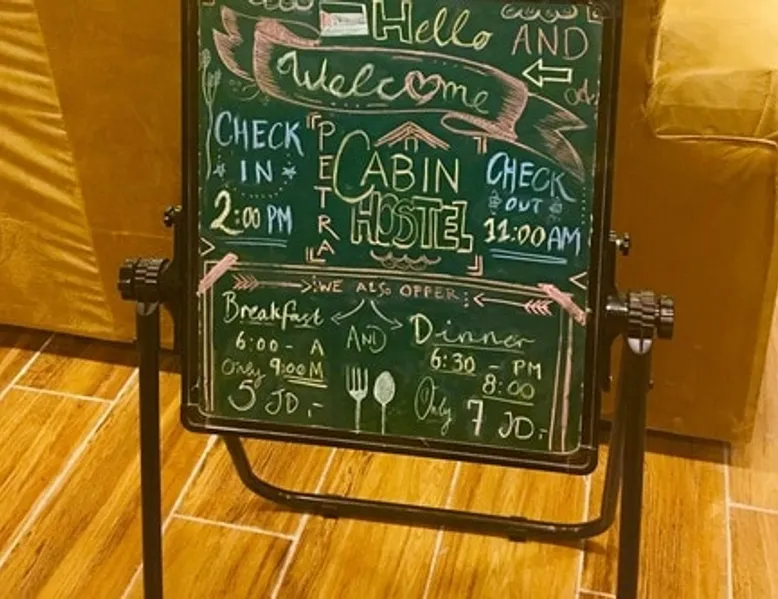 Hello AND
Welcome
CHECK
IN
2:00 PM
PETRA
CABIN
HOSTEL
CHECK
OUT
11:00 AM
WE ALSO OFFER:
Breakfast
6:00 - A
9:00 M
Only
5 JD,-
AND
Dinner
6:30 - PM
8:00
Only 7 JD,-